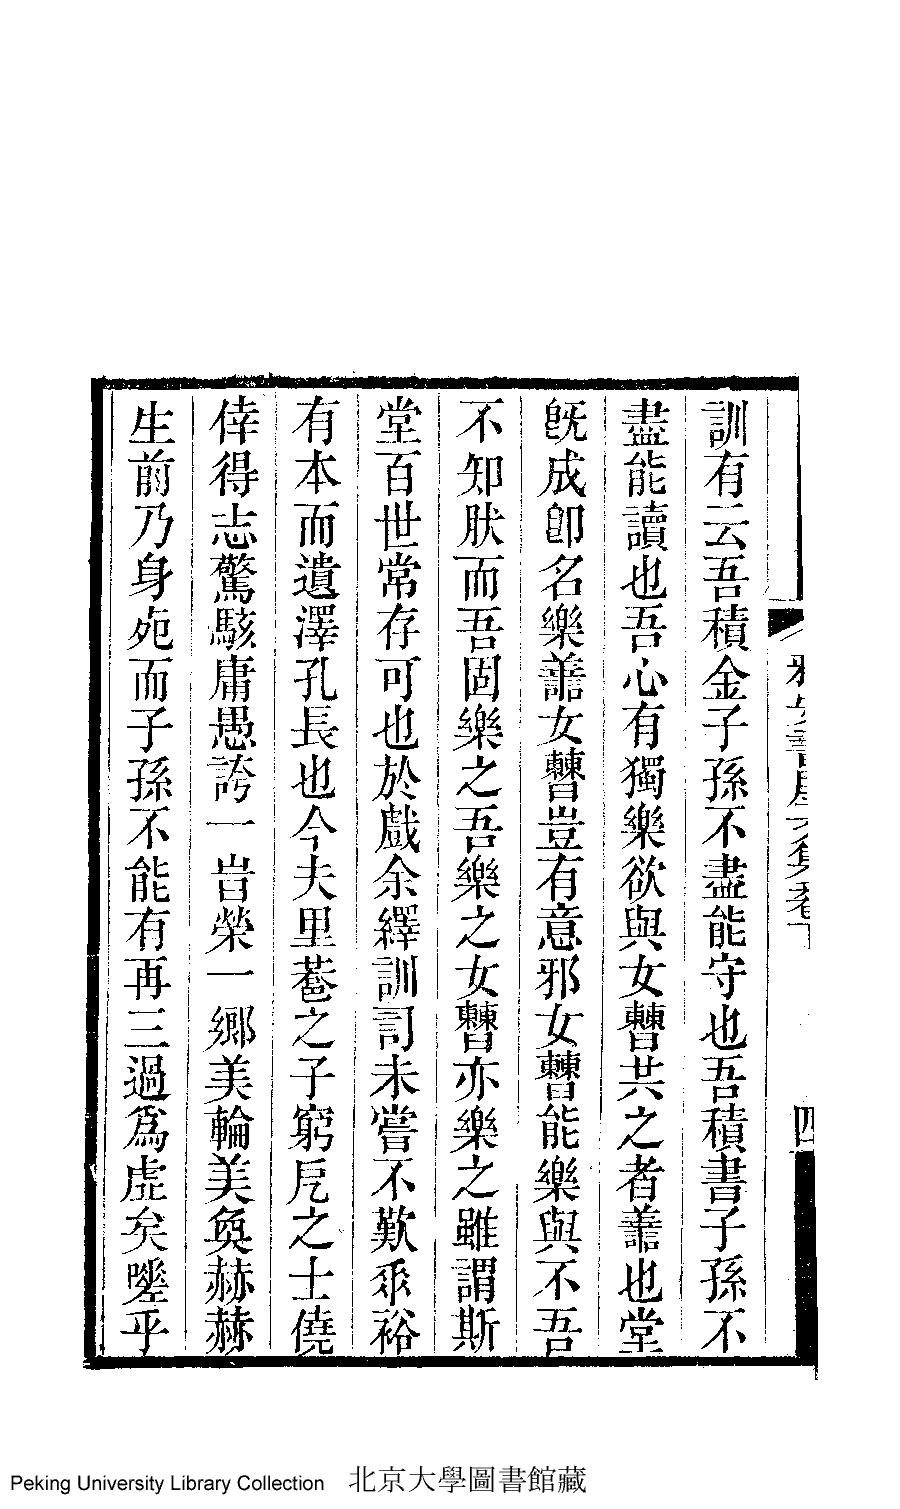 訓有云吾積金子孫不盡能守也吾積書子孫不
盡能讀也吾心有獨樂欲與女曹共之者譱也堂
旣成卽名樂譱女曹豈有意邪女曹能樂與不吾
不知肰而吾固樂之吾樂之女曹亦樂之雖謂斯
堂百世常存可也於戲余繹訓司未嘗不歎𠂹裕
有本而遺澤孔長也今夫里巷之子窮戹之士僥
倖得志驚駭庸愚誇一旹榮一鄉美輪美奐赫赫
生前乃身𣦸而子孫不能有再三過爲虛矣嗟乎
書屋文集卷下
四
Peking University Library Collection 北京大學圖書館藏